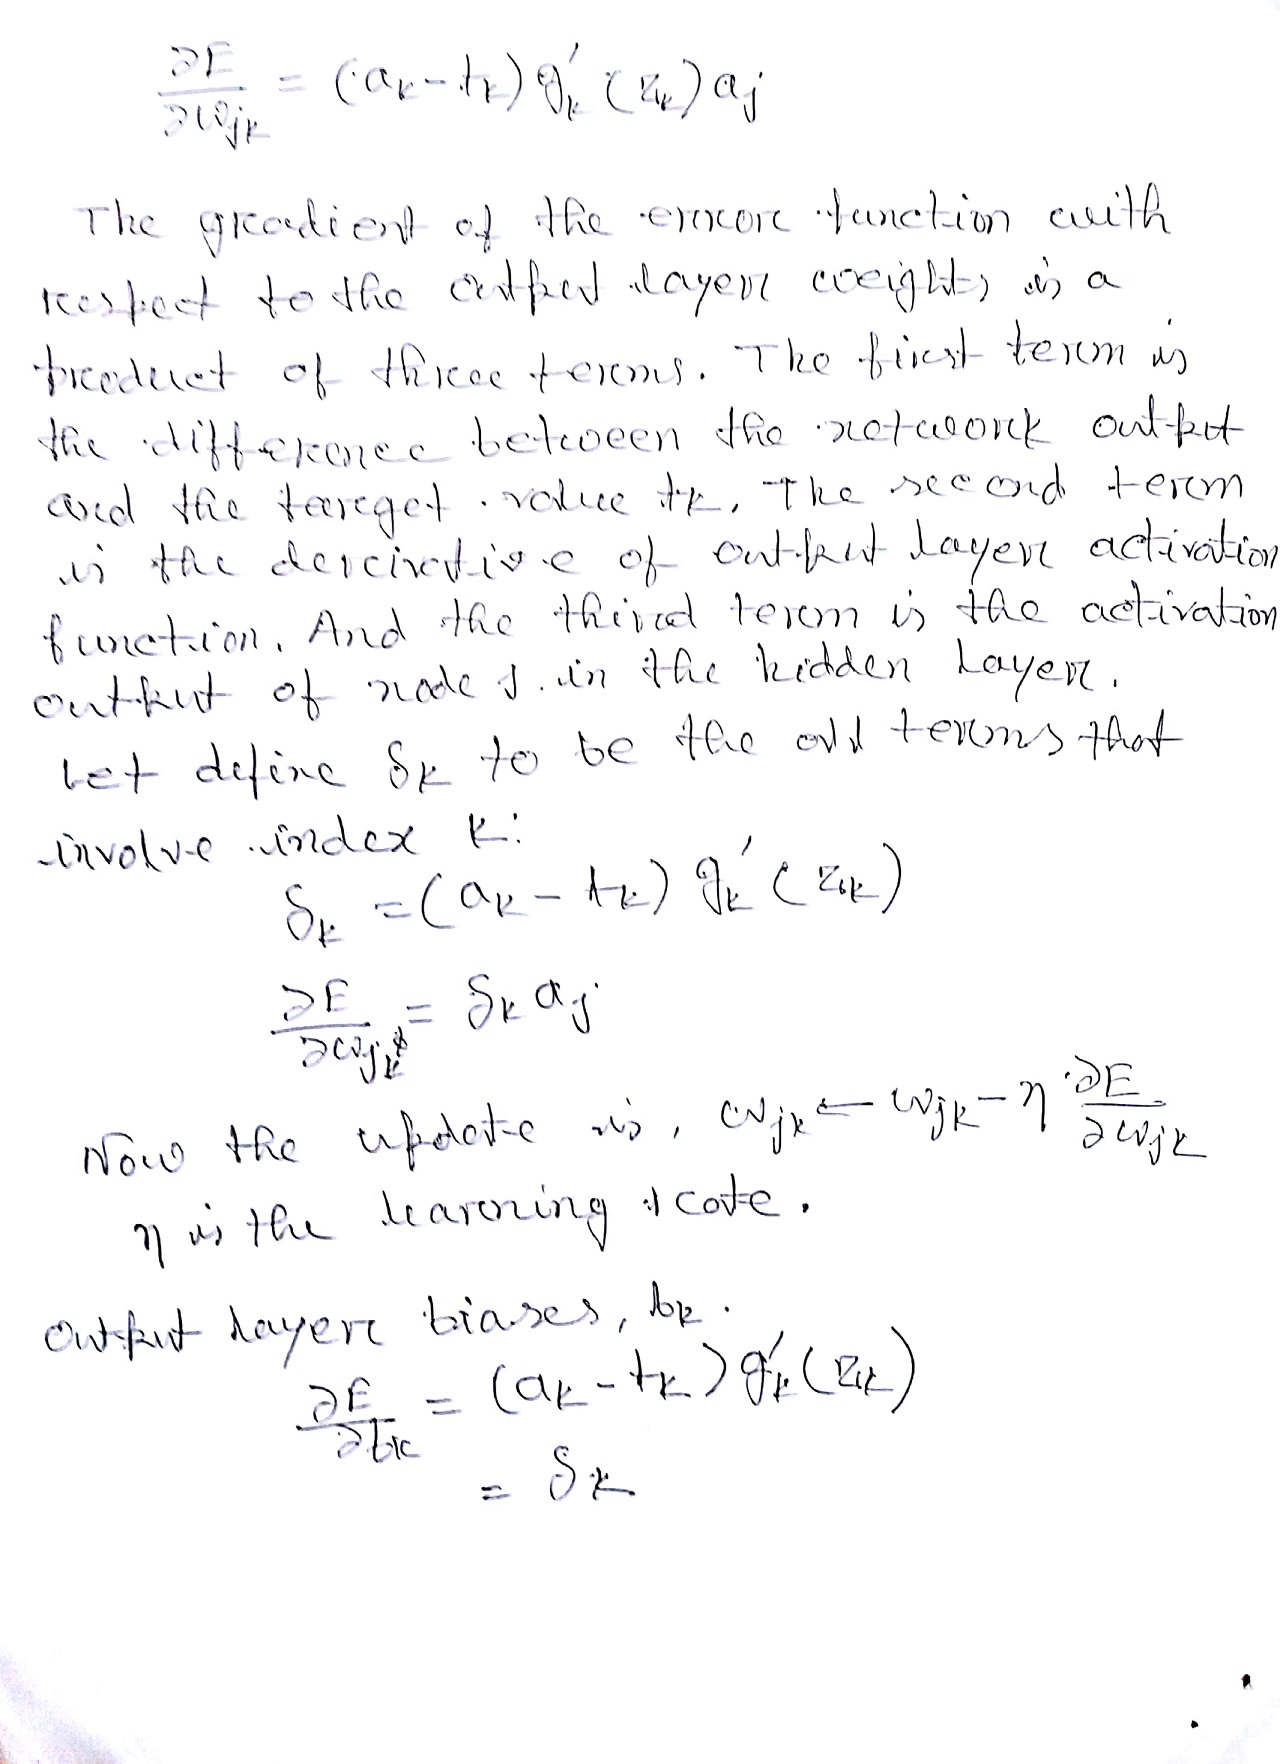 ∂E/∂wjk = (ak - tk) g'k (zk) aj
The gradient of the error function with
respect to the output layer weights is a
product of three terms. The first term is
the difference between the network output
and the target value tk. The second term
is the derivative of output layer activation
function. And the third term is the activation
output of node j in the hidden layer.
Let define δk to be the all terms that
involve index k:
δk = (ak - tk) g'k (zk)
∂E/∂wjk = δk aj
Now the update is, wjk ← wjk - η ∂E/∂wjk
η is the learning rate.
Output layer biases, bk.
∂E/∂bk = (ak - tk) g'k (zk)
= δk